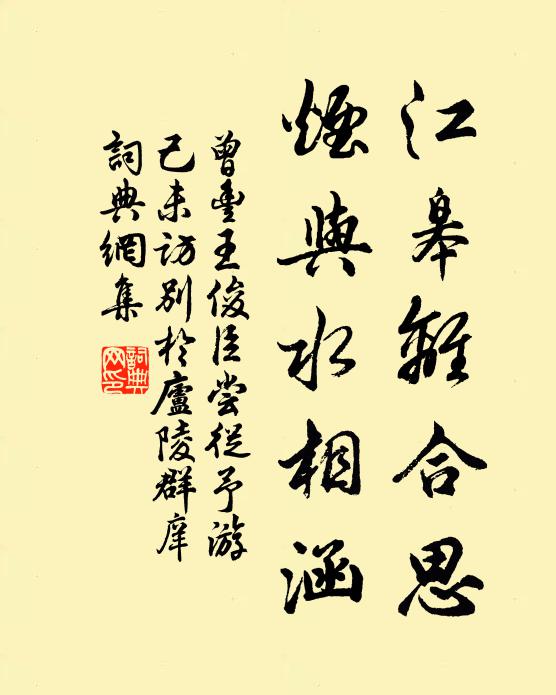 江皋離合思
煙與水相涵
曾豐王俊臣嘗從予游
己未訪别於廬陵群庠
詞典網集
詞典網印